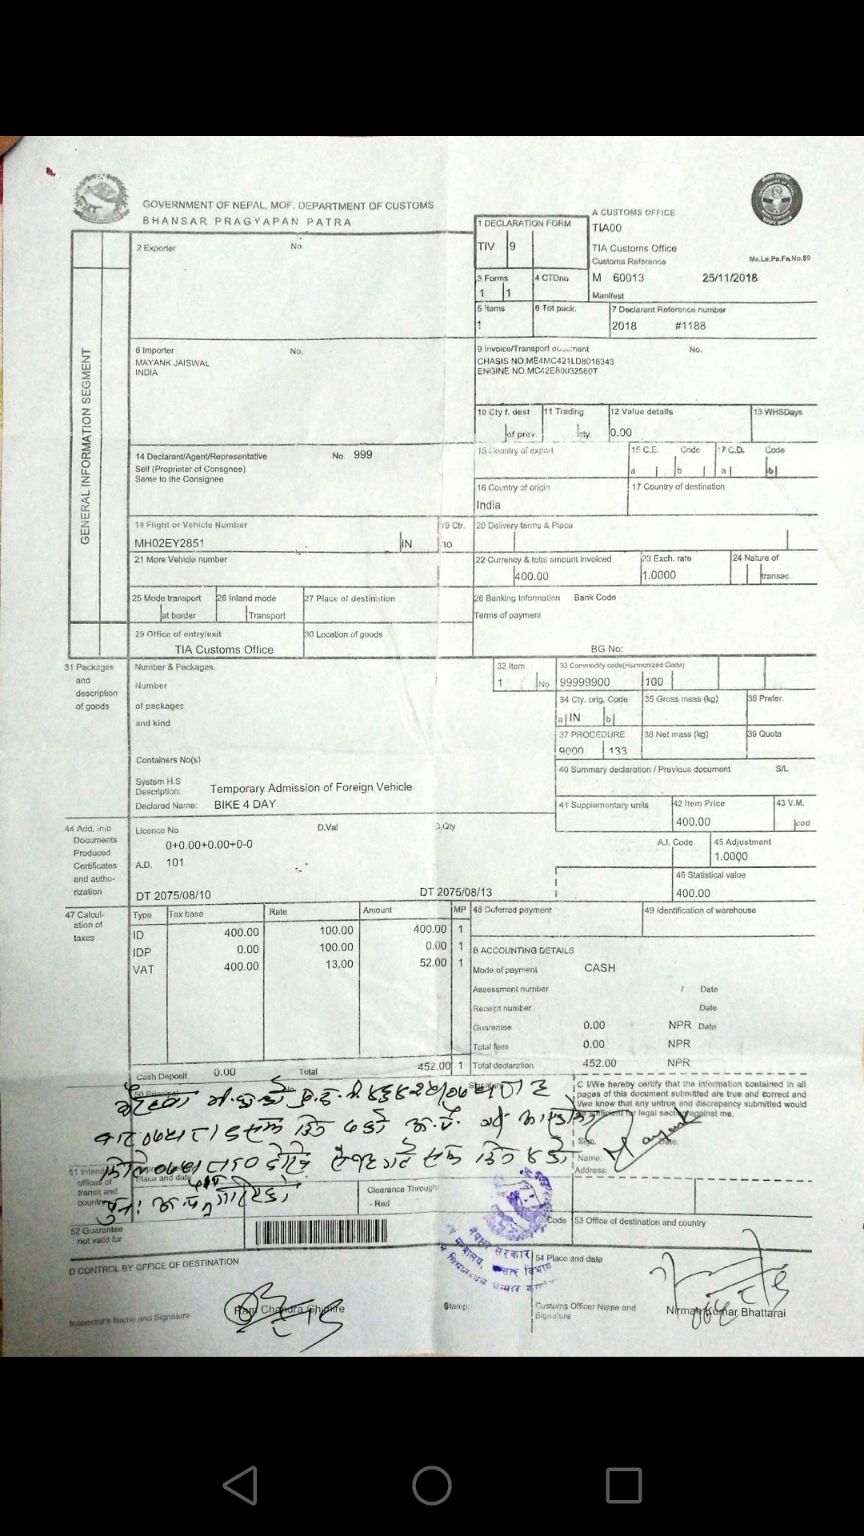 GOVERNMENT OF NEPAL, MOF. DEPARTMENT OF CUSTOMS
BHANSAR PRAGYAPAN PATRA
1 DECLARATION FORM
TIV 9
A CUSTOMS OFFICE
TIA00
TIA Customs Office
Customs Reference
Ma.Le.Pa.Fa.No.69
M 60013 25/11/2018
Manifest
GENERAL INFORMATION SEGMENT
2 Exporter No.
3 Forms 4 CTDno
1 1
5 Items 6 Tot pack. 7 Declarant Reference number
1 2018 #1188
6 Importer No.
MAYANK JAISWAL
INDIA
9 Invoice/Transport No.
CHASIS NO:ME4MC421LD8016343
ENGINE NO:
10 Cty f. dest 11 Trading 12 Value details 13 WHSDays
of prev. cty. 0.00
14 Declarant/Agent/Representative No. 999
Self (Proprietor of Consgnee)
Same to the Consignee
15 Country of export 15 C.E. Code 17 C.D. Code
a b a b
16 Country of origin 17 Country of destination
India
18 Flight or Vehicle Number 19 Ctr. 20 Delivery terms & Place
MH02EY2851 IN no
21 More Vehicle number
22 Currency & total amount invoiced 23 Exch. rate 24 Nature of
400.00 1.0000 transac.
25 Mode transport 26 Inland mode 27 Place of destination
at border Transport
28 Banking Information Bank Code
Terms of payment
29 Office of entry/exit 30 Location of goods
TIA Customs Office
BG No:
31 Packages
and
description
of goods
Number & Packages.
Number
of packages
and kind
32 Item
1 No
33 Commodity code(Harmonized Code)
99999900 100
34 Cty. orig. Code 35 Gross mass (kg) 36 Prefer.
a IN b
37 PROCEDURE 38 Net mass (kg) 39 Quota
9000 133
Containers No(s)
40 Summary declaration / Previous document S/L
System H.S
Description: Temporary Admission of Foreign Vehicle
Declared Name: BIKE 4 DAY
41 Supplementary units 42 Item Price 43 V.M.
400.00 cod
44 Add. info
Documents
Produced
Certificates
and autho-
rization
Licence No D.Val Qty
0+0.00+0.00+0-0
A.D. 101
A.I. Code 45 Adjustment
1.0000
46 Statistical value
400.00
DT 2075/08/10 DT 2075/08/13
47 Calcul-
ation of
taxes
Type Tax base Rate Amount MP
ID 400.00 100.00 400.00 1
IDP 0.00 100.00 0.00 1
VAT 400.00 13.00 52.00 1
48 Deferred payment 49 Identification of warehouse
B ACCOUNTING DETAILS
Mode of payment CASH
Assessment number / Date
Receipt number Date
Guarantee 0.00 NPR Date
Total fees 0.00 NPR
Total declaration 452.00 NPR
Cash Deposit 0.00 Total 452.00 1
C I/We hereby certify that the information contained in all
pages of this document submitted are true and correct and
I/We know that any untrue and discrepancy submitted would
be sufficient for legal section against me.
Sign. Date:
Mayank
Name:
Address:
Place and date
Clearance Through
- Red
Code 53 Office of destination and country
52 Guarantee
not valid for
D CONTROL BY OFFICE OF DESTINATION
54 Place and date
Ram Chandra Ghimire
Inspector's Name and Signature
Stamp:
Customs Officer Name and
Signature
Nirman Kumar Bhattarai